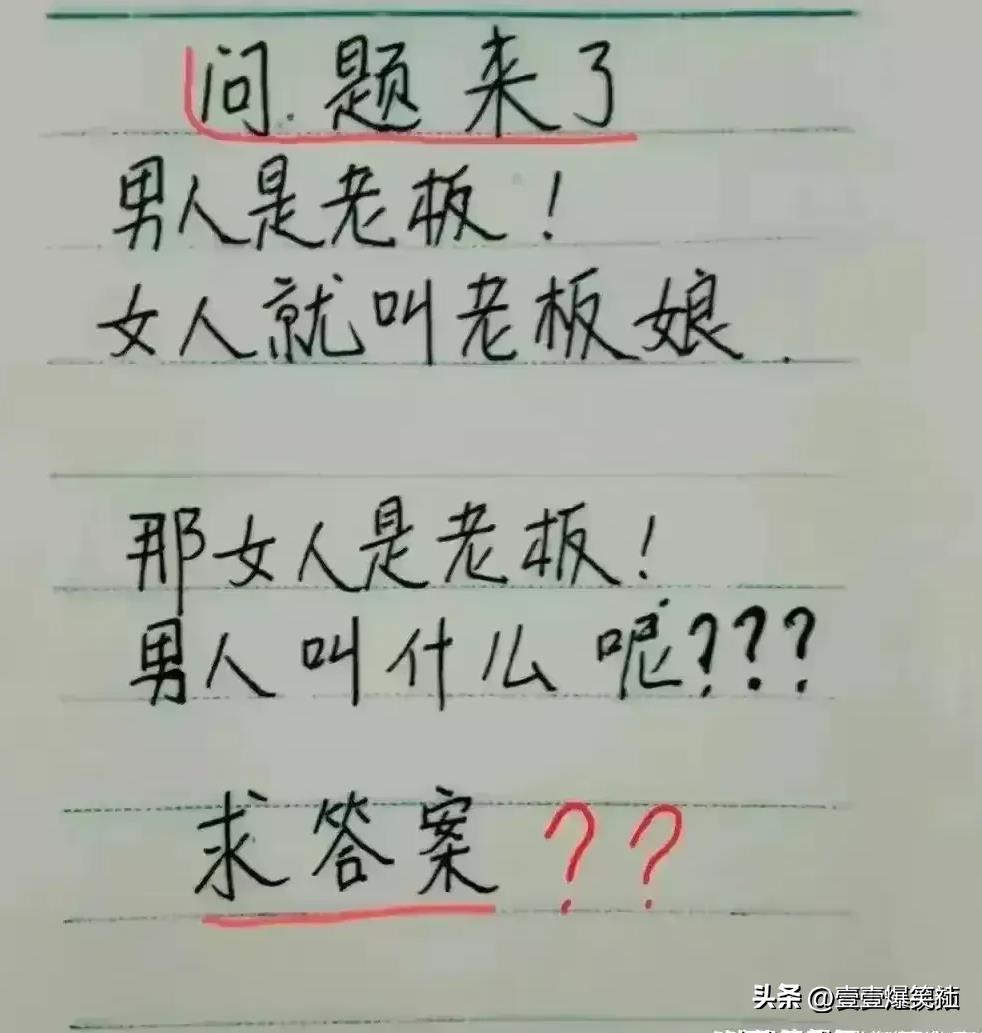 问题来了
男人是老板！
女人就叫老板娘.
那女人是老板！
男人叫什么呢???
求答案??
头条 @壹壹爆笑社